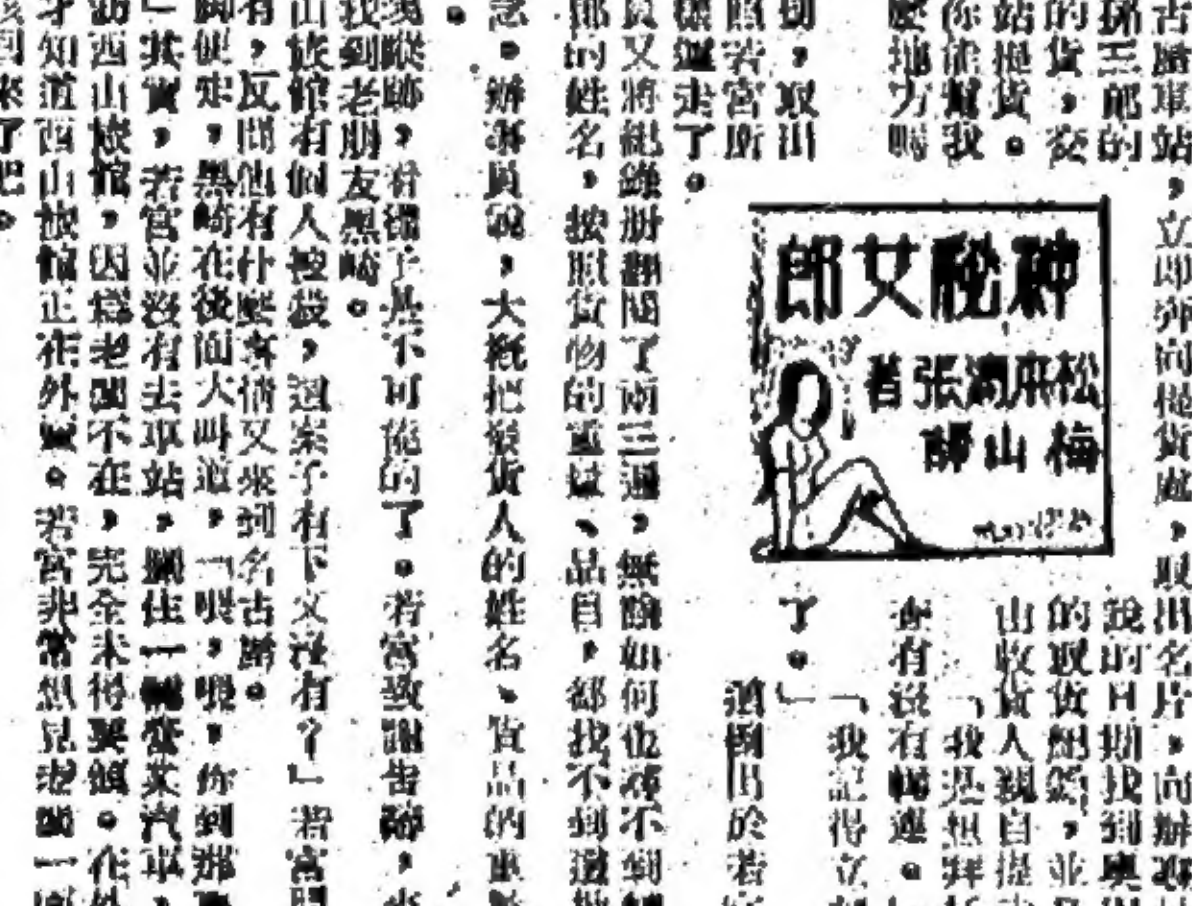 古踏車站，立即奔向提貨處，取出名片，向辦事
孫三郎的
的貨，交
站提貨。
你能幫我
麼地方嗎
切，取出
照若宮所
樣運走了。
神秘女郎
松本清張著
梅山譯
說的日期找到
的取貨紀錄，並
山收貨人親自提
「我是想拜
查有沒有轉運。
「我記得立
了。」
這倒出於若
員又將紀錄册翻閱了兩三遍，無論如何也找不到
郎的姓名，按照貨物的重量、品目，都找不到這批
念。辦事員說，大概把發貨人的姓名、貨品的重
。
現蹤跡，看樣子是不可能的了。若宮致謝告辭，
找到老朋友黑崎。
山旅館有個人被殺，這案子有下文沒有？」若宮
有，反問他有什麼事情又來到名古踏。
脚便走，黑崎在後面大叫道，「喂，喂，你到那
」其實，若宮並沒有去車站，攔住一輛營業汽車，
訪西山旅館，因爲老闆不在，完全未得要領。在外
才知道西山旅館正在外。若宮非常想見老闆一
到來了吧。